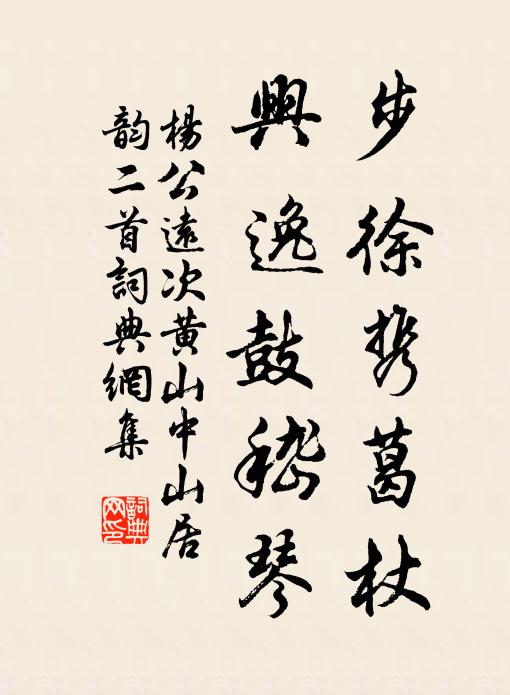 步徐携葛杖
興逸鼓嵇琴
楊公遠次黄山中山居
韵二首詞典網集
詞典
网印